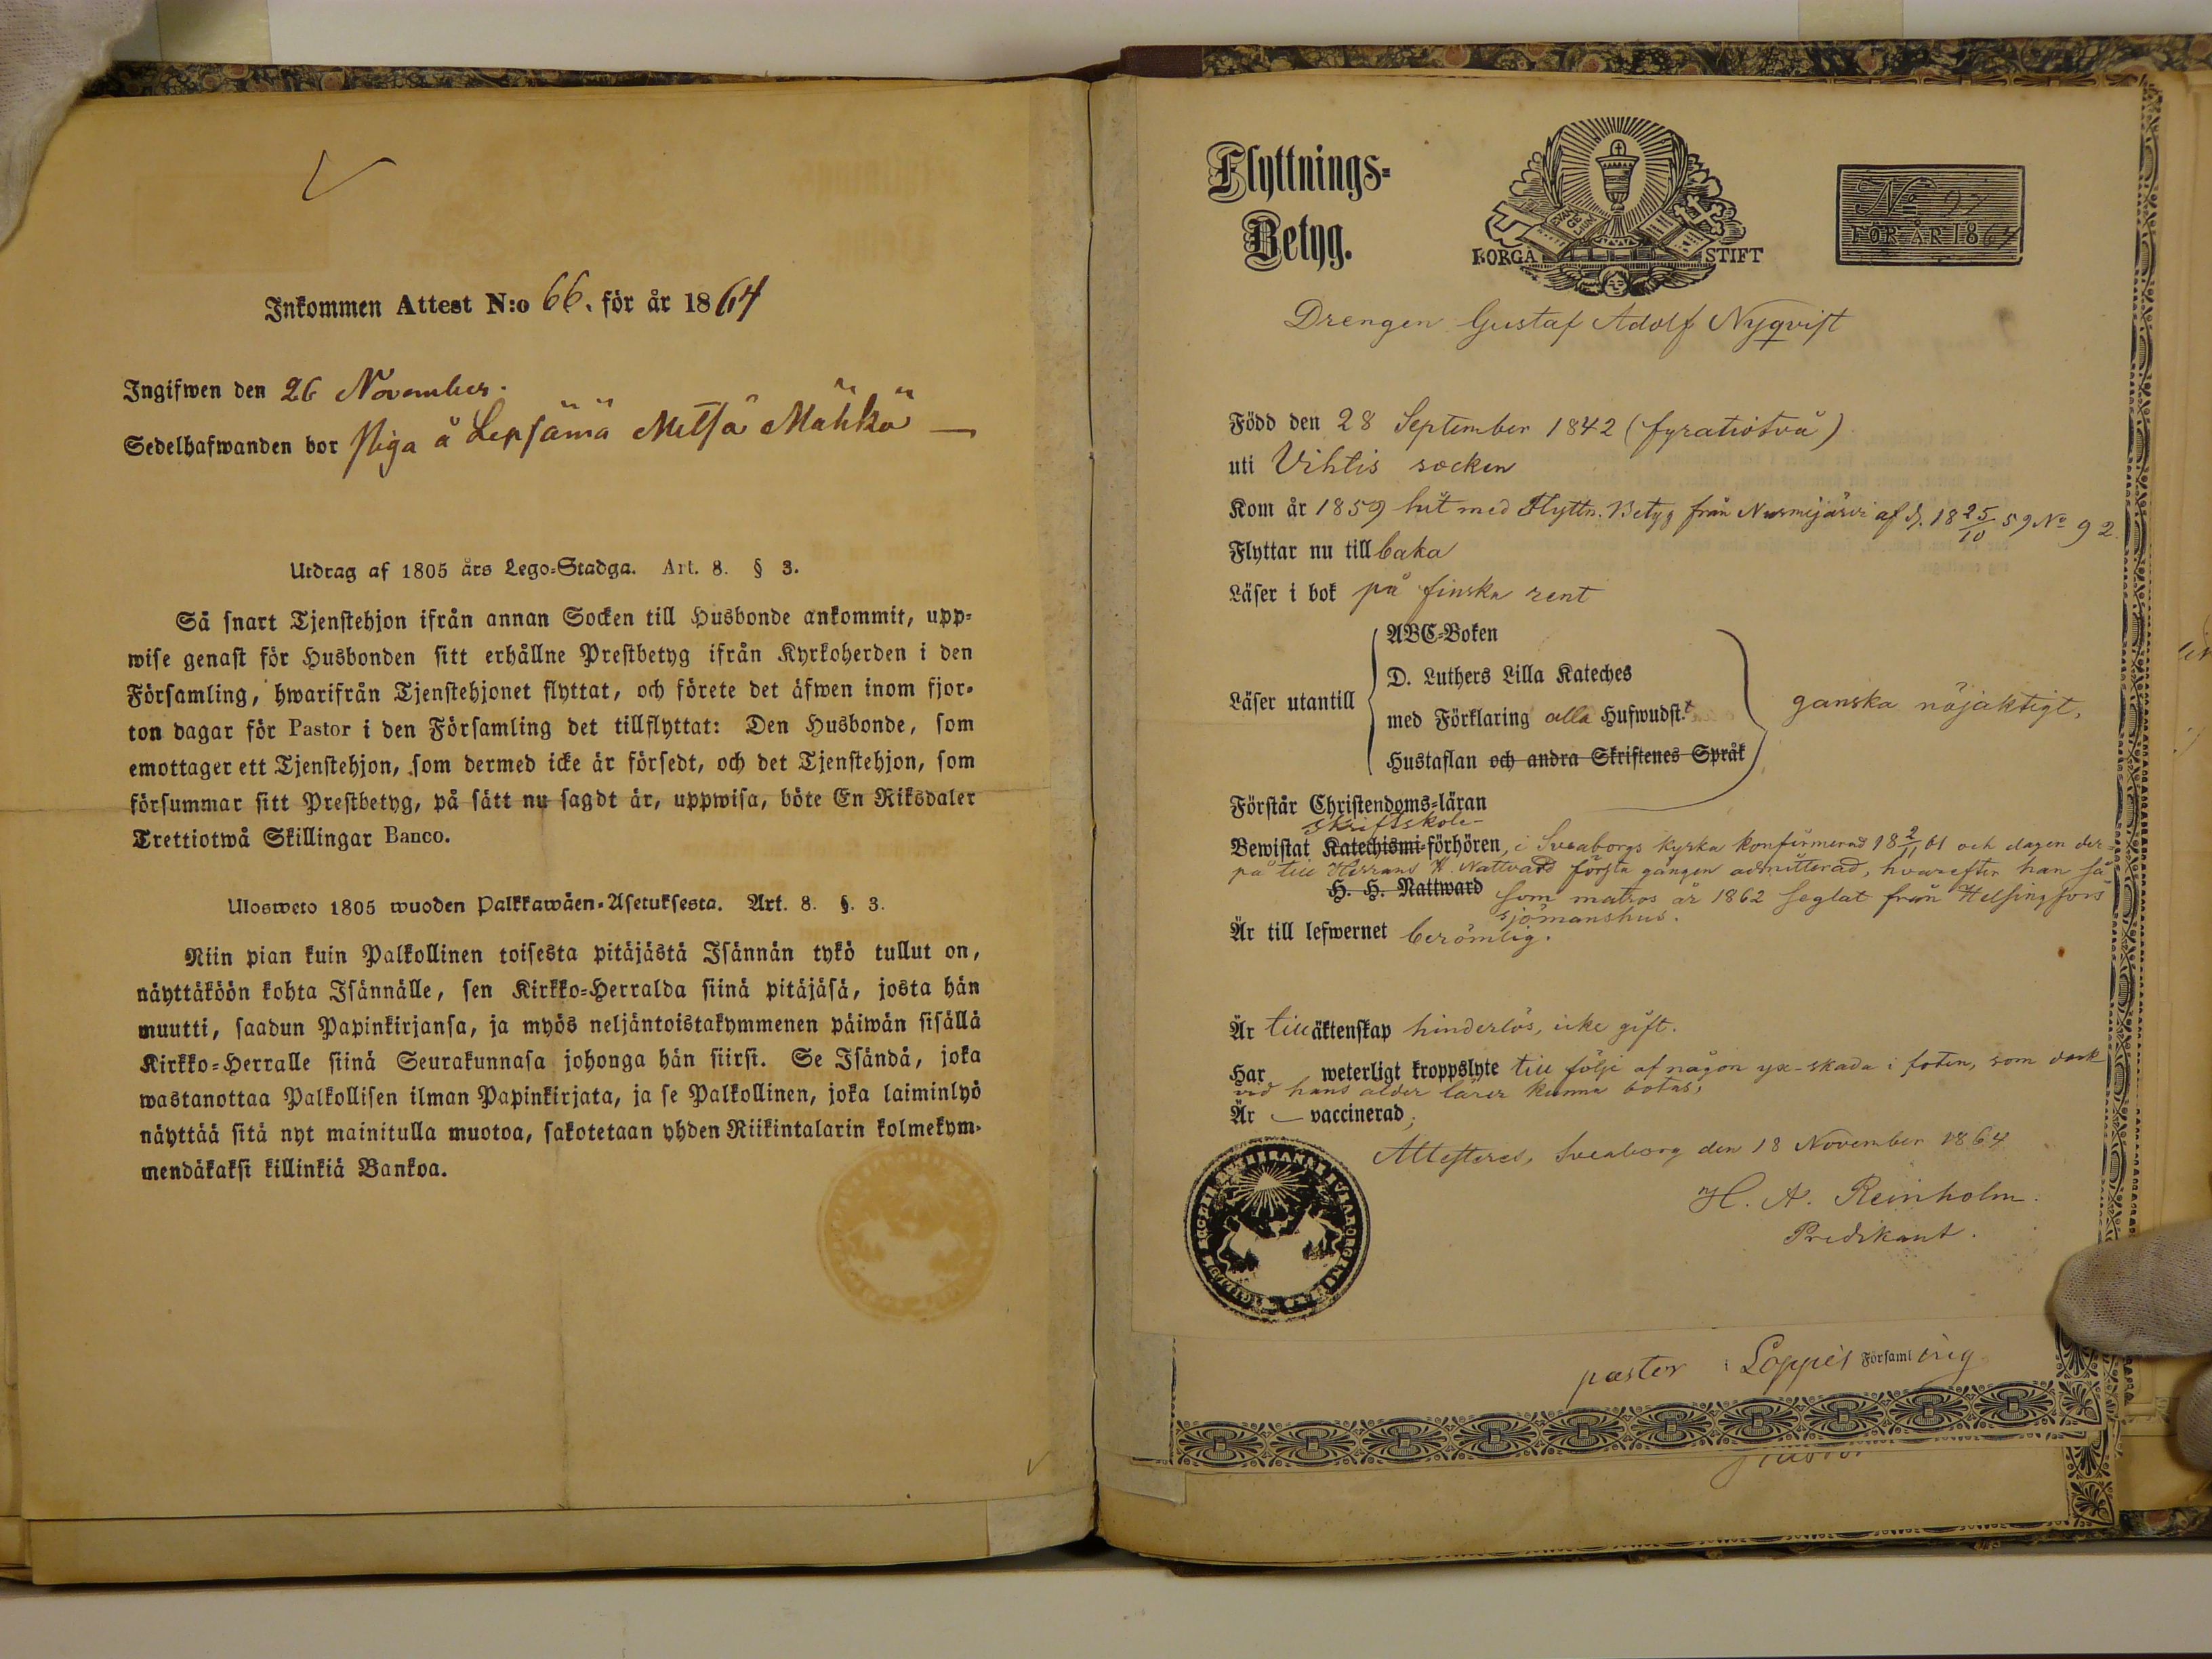 Inkommen Attest N:o 66. för år 1864
Ingifwen den 26 November.
Sedelhafwanden bor Piga å Lepsämä Metsä Mähkä —
Utdrag af 1805 års Lego-Stadga. Art. 8. § 3.
Så snart Tjenstehjon ifrån annan Socken till Husbonde ankommit, upp-
wise genast för Husbonden sitt erhållne Prestbetyg ifrån Kyrkoherden i den
Församling, hwarifrån Tjenstehjonet flyttat, och förete det äfwen inom fjor-
ton dagar för Pastor i den Församling det tillflyttat: Den Husbonde, som
emottager ett Tjenstehjon, som dermed icke är försedt, och det Tjenstehjon, som
försummar sitt Prestbetyg, på sätt nu sagdt är, uppwisa, böte En Riksdaler
Trettiotwå Skillingar Banco.
Ulosweto 1805 wuoden Palkkawäen-Asetuksesta. Art. 8. §. 3.
Niin pian kuin Palkollinen toisesta pitäjästä Isännän tykö tullut on,
näyttäköön kohta Isännälle, sen Kirkko-Herralda siinä pitäjäsä, josta hän
muutti, saadun Papinkirjansa, ja myös neljäntoistakymmenen päiwän sisällä
Kirkko-Herralle siinä Seurakunnasa johonga hän siirsi. Se Isändä, joka
wastanottaa Palkollisen ilman Papinkirjata, ja se Palkollinen, joka laiminlyö
näyttää sitä nyt mainitulla muotoa, sakotetaan yhden Riikintalarin kolmekym-
mendäkaksi killinkiä Bankoa.
Flyttnings-
Betyg.
EVAN
GE
LIUM
BORGÅ STIFT
No 97
FÖR ÅR 1864
Drengen Gustaf Adolf Nyqvist
Född den 28 September 1842 (fyratiotvå)
uti Vihtis socken
Kom år 1859 hit med Flyttn. Betyg från Nurmijärvi af d. 18 25/10 59 No 92
Flyttar nu tillbaka
Läser i bok på finska rent
ABC-Boken
D. Luthers Lilla Kateches
Läser utantill
med Förklaring alla Hufwudst.
ganska nöjaktigt,
Hustaflan och andra Skriftenes Språk
Förstår Christendoms-läran
Skriftskole-
Bewistat Katechismi-förhören, i Sveaborgs kyrka konfirmerad 18 2/11 61 och dagen der-
på till Herrans H. Nattvard första gången admitterad, hvarefter han så
H. H. Nattward som matros år 1862 seglat från Helsingfors
sjömanshus.
Är till lefwernet berömlig.
Är till äktenskap hinderlös, icke gift.
Har weterligt kroppslyte till följe af någon yx-skada i foten, som dock
vid hans ålder lärer kunna botas,
Är — vaccinerad,
Attesteres, Sveaborg den 18 November 1864
H. A. Reinholm.
Predikant.
pastor i Loppis Församling